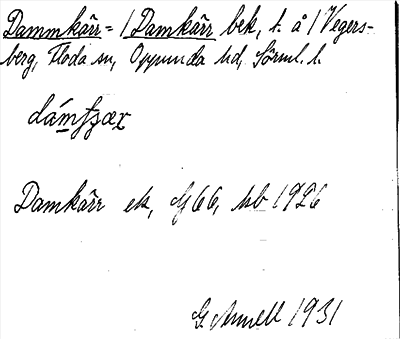 Dammkärr = / Damkärr bek, t. å / Vegers-
berg, Floda sn, Oppunda hd, Sörml. l.
Damkärr ek, G 66, hb 1926
G Amell 1931